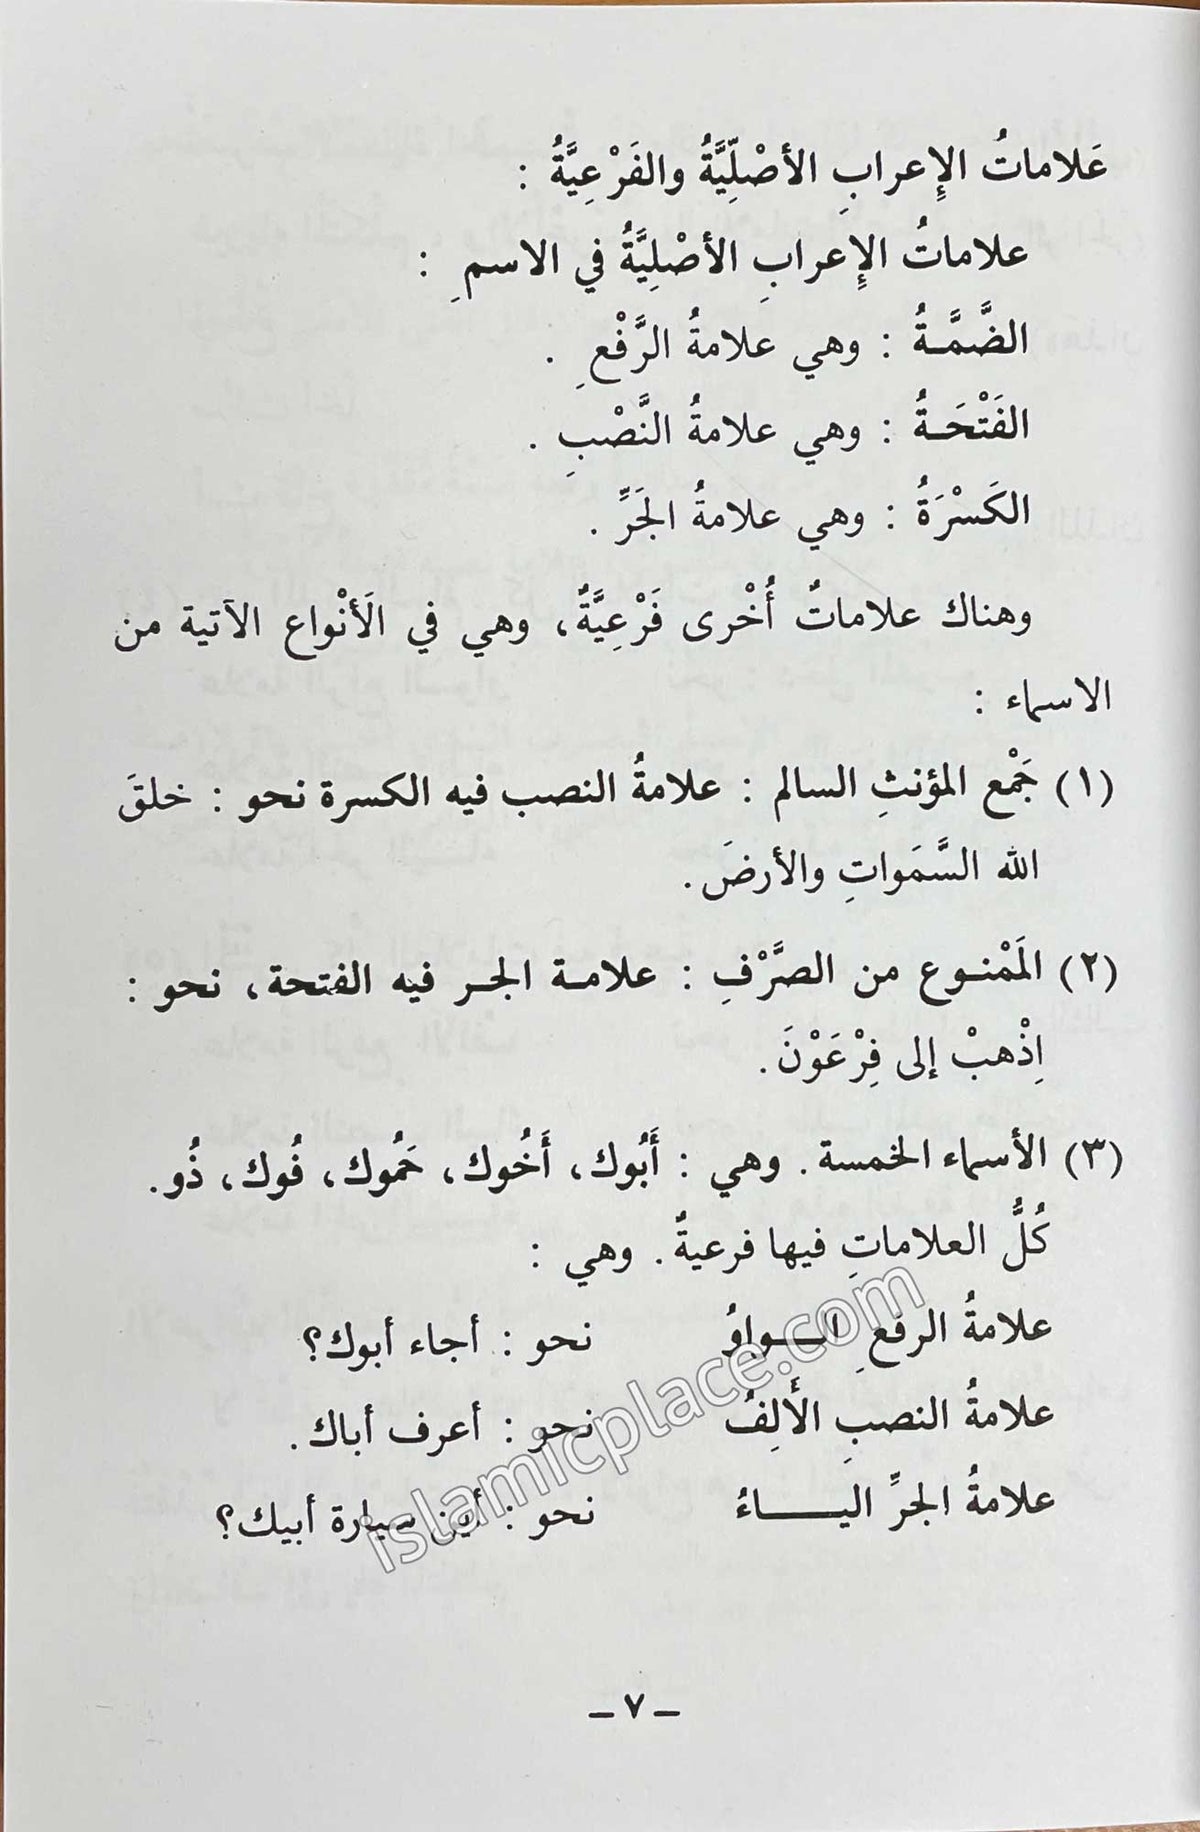 عَلاماتُ الإِعرابِ الأصْلِّيَّةُ والفَرْعِيَّةُ :
علاماتُ الإِعرابِ الأصْلِيَّةُ في الاسمِ :
الضَّمَّـةُ : وهي علامةُ الرَّفْعِ .
الفَتْحَـةُ : وهي علامةُ النَّصْبِ .
الكَسْرَةُ : وهي علامةُ الجَرِّ .
وهناك علاماتٌ أُخْرى فَرْعِيَّةٌ، وهي في الَأنْواع الآتية من
الاسماء :
(١) جَمْع المؤنثِ السالم : علامةُ النصب فيه الكسرة نحو : خلقَ
الله السَّمَواتِ والأرضَ.
(٢) المَمْنـوع من الصَّرْفِ : علامـة الجـر فيه الفتحة، نحو :
اِذْهبْ إلى فِرْعَوْنَ.
(٣) الأسماء الخمسة. وهي : أَبُوك، أَخُوك، حَمُوك، فُوك، ذُو.
كُلُّ العلاماتِ فيها فرعيةٌ. وهي :
علامةُ الرفعِ الـــواوُ نحو : أجاء أبوك؟
علامةُ النصبِ الأَلِفُ نحو : أعرف أباك.
علامةُ الجرِّ اليـــــاءُ نحو : أين سيارة أبيك؟
islamicplace.com
– ٧ –